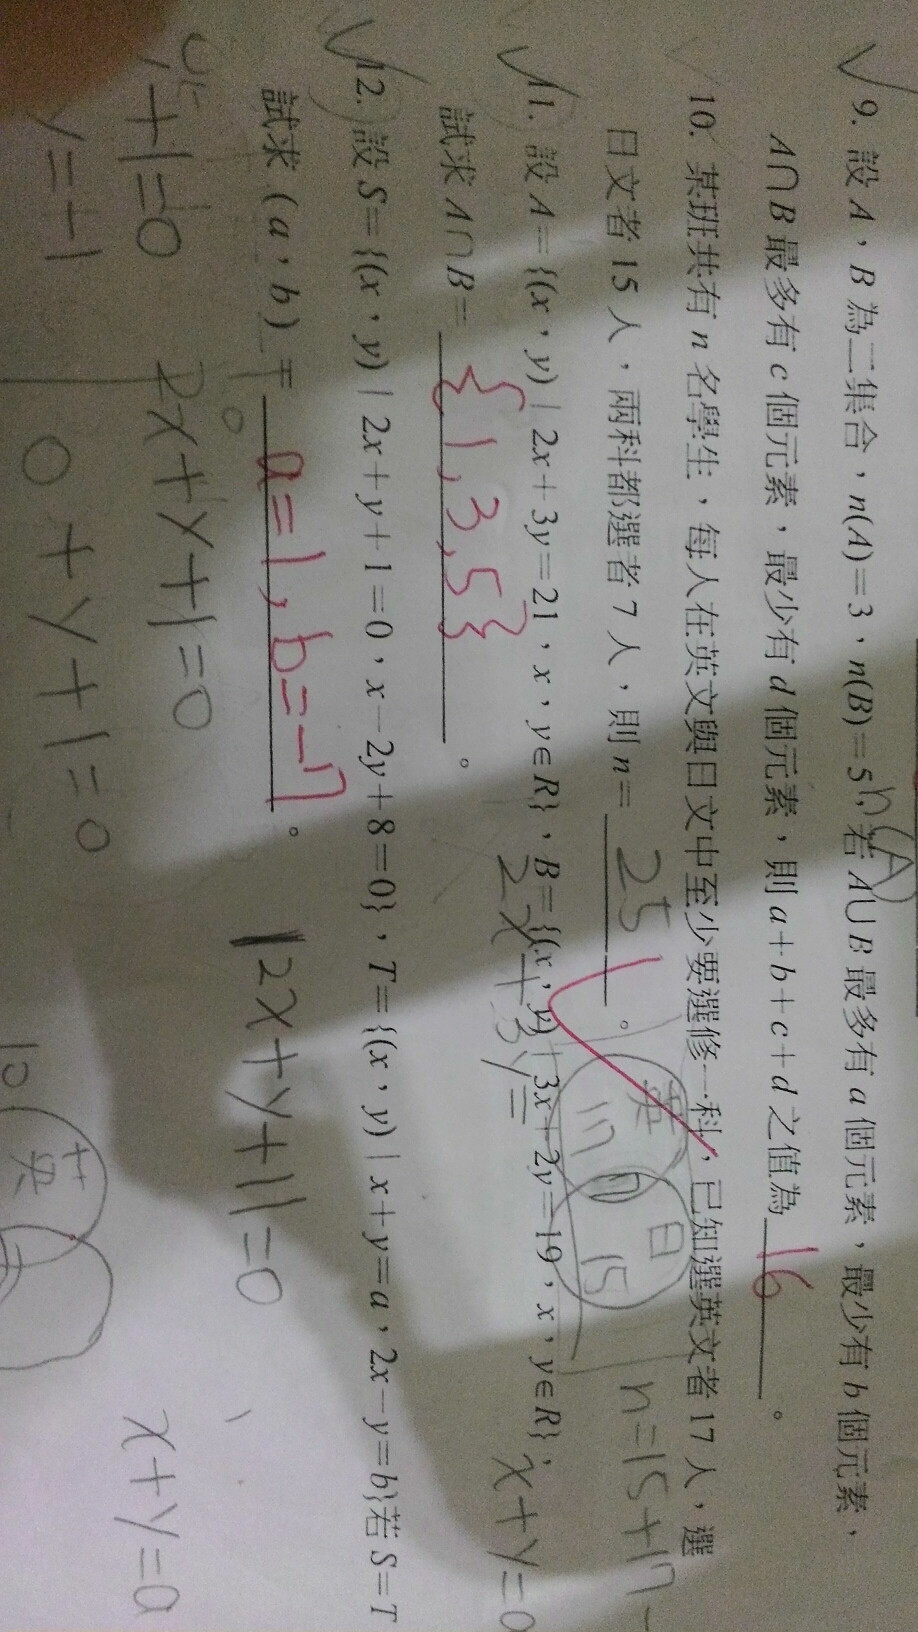 9. 設 A，B 為二集合，n(A)=3，n(B)=5，若 A∪B 最多有 a 個元素，最少有 b 個元素，
n(A)
A∩B 最多有 c 個元素，最少有 d 個元素，則 a+b+c+d 之值為 16 。
10. 某班共有 n 名學生，每人在英文與日文中至少要選修一科，已知選英文者 17 人，選
日文者 15 人，兩科都選者 7 人，則 n= 25 。
英 日
17 7 15
n=15+17-
11. 設 A={(x，y)｜2x+3y=21，x，y∈R}，B={(x，y)｜3x-2y=19，x，y∈R}，
試求 A∩B= {1,3,5} 。
2x+3y=
x+y=0
12. 設 S={(x，y)｜2x+y+1=0，x-2y+8=0}，T={(x，y)｜x+y=a，2x-y=b}若 S=T
試求 (a，b)= a=1, b=-7 。
2x+y+1=0
y+1=0
2x+y+1=0
x+y=a
y=-1
0+y+1=0
10
英